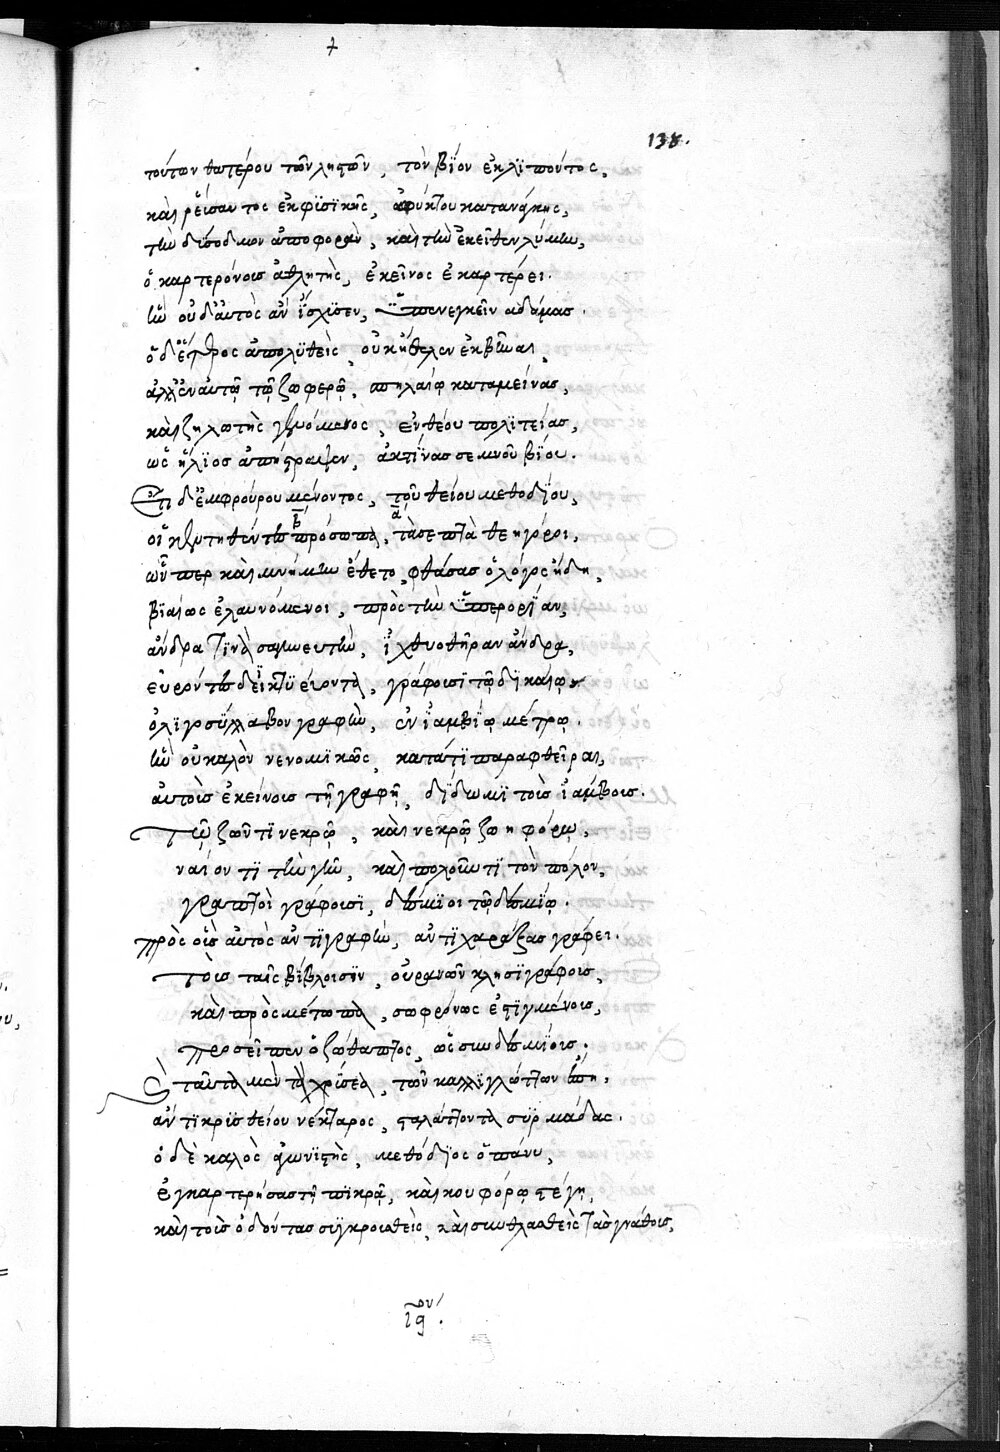 138.
τούτων θατέρου τῶν ληστῶν, τὸν βίον ἐκλϊπόντος,
καὶ ῥεύσαντος ἐκ φϊσϊκῆς, ἀφύκτου κατανάγκης,
τὴν δϊσοδμον ἀποφορὰν, καὶ τὴν ἐκεῖθεν λύμην,
ὁ καρτερόνοις ἀθλητὴς, ἐκεῖνος ἐκαρτέρει.
ἣν οὐδ' αὐτὸς ἂν ἴσχϊσεν, ὑπενεγκεῖν ἀδάμας.
ὁ δ' ἕτερος ἀπολϋθεὶς, οὐκ ἤθελεν ἐκβῆναι,
ἀλλ' ἐν αὐτῷ τῷ ζοφερῷ, σπηλαίῳ καταμείνας,
καὶ ζηλωτὴς γενόμενος, ἐνθέου πολϊτείας,
ὡς ἥλϊος ἀπήστραψεν, ἀκτίνας σεμνοῦ βίου.
Ἔτι δ' ἐμφρούρου μένοντος, τοῦ θείου μεθοδΐου,
οἱ κεντηθέντες πρόσωπα, τὰ σεπτὰ θεηγόροι,
ὧνπερ καὶ μνήμην ἔθετο, φθάσας ὁ λόγος ἤδη,
βϊαίως ἐλαυνόμενοι, πρὸς τὴν ὑπερορΐαν,
ἄνδρα τϊνὰ σαγηνευτὴν, ἰχθυοθήραν ἄνδρα,
εὑρόντες δεικνϋέοντα, γράφουσϊ τῷ δϊκαίῳ
ὀλϊγοσύλλαβον γραφὴν, ἐν ϊαμβϊῳ μέτρῳ.
ἣν οὐ καλὸν νενομϊκὼς, κατάτϊ παραφθεῖραι,
αὐτοῖς ἐκείνοις τῇ γραφῇ, δϊδωμϊ τοῖς ϊάμβοις.
Τῷ ζῶντϊ νεκρῷ, καὶ νεκρῷ ζωηφόρῳ,
ναίοντϊ τὴν γῆν, καὶ πολοῦντϊ τὸν πόλον,
γραπτοὶ γράφουσϊ, δέσμϊοι τῷ δεσμΐῳ.
πρὸς οἷς αὐτὸς ἀντϊγραφὴν, ἀντϊχαράξας γράφει.
Τοὺς ταῖς βίβλοισϊν, οὐρανῶν κλησϊγράφους,
καὶ πρὸς μέτωπα, σωφρόνως ἐστϊγμένοις,
προσεῖπεν ὁ ζωθαπτος, ὡς συνδεσμΐους.
Ταῦτα μὲν τὰ χρΰσεα, τῶν καλλϊγλώττων ἔπη,
ἀντϊκρϊς θείου νέκταρος, σταλάττοντα συρμάδας.
ὁ δὲ καλὸς ἀγωνϊστὴς, μεθόδϊος ὁ πάνυ,
ἐγκαρτερήσας τῇ πϊκρᾷ, καὶ κουφόρῳ στέγῃ,
καὶ τοὺς ὀδόντας συγκροισθεὶς, καὶ συνθλασθεὶς τὰς γνάθοις,